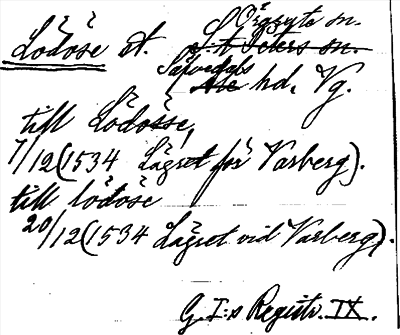 Lödöse st. S. t. Peters sn. Örgryte sn.
Sävedals Ale hd, Vg.
till Lödösse,
7/12 (1534 Lägret för Varberg).
till lödöse
20/12 (1534 Lägret vid Varberg).
G. I:s Registr. IX.